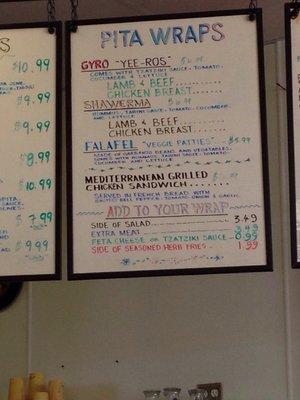 $10.99
$9.99
$9.99
$8.99
$10.99
$7.99
$9.99
PITA WRAPS
GYRO "YEE-ROS"
COMES WITH TZATZIKI SAUCE - TOMATO
CUCUMBER & LETTUCE
LAMB & BEEF
CHICKEN BREAST
SHAWERMA
HUMMUS, TAHINI SAUCE - TOMATO - CUCUMBER
AND LETTUCE
LAMB & BEEF
CHICKEN BREAST
FALAFEL "VEGGIE PATTIES"
MADE OF GARBANZO BEANS AND VEGETABLES
COMES WITH HUMMUS, TAHINI SAUCE - TOMATO
CUCUMBER AND LETTUCE
MEDITERRANEAN GRILLED
CHICKEN SANDWICH
SERVED IN FRENCH BREAD WITH
BELL PEPPER - TOMATO - ONION & GARLIC
ADD TO YOUR WRAP
SIDE OF SALAD 3.49
EXTRA MEAT 3.49
FETA CHEESE OR TZATZIKI SAUCE 0.99
SIDE OF SEASONED HERB FRIES 1.99